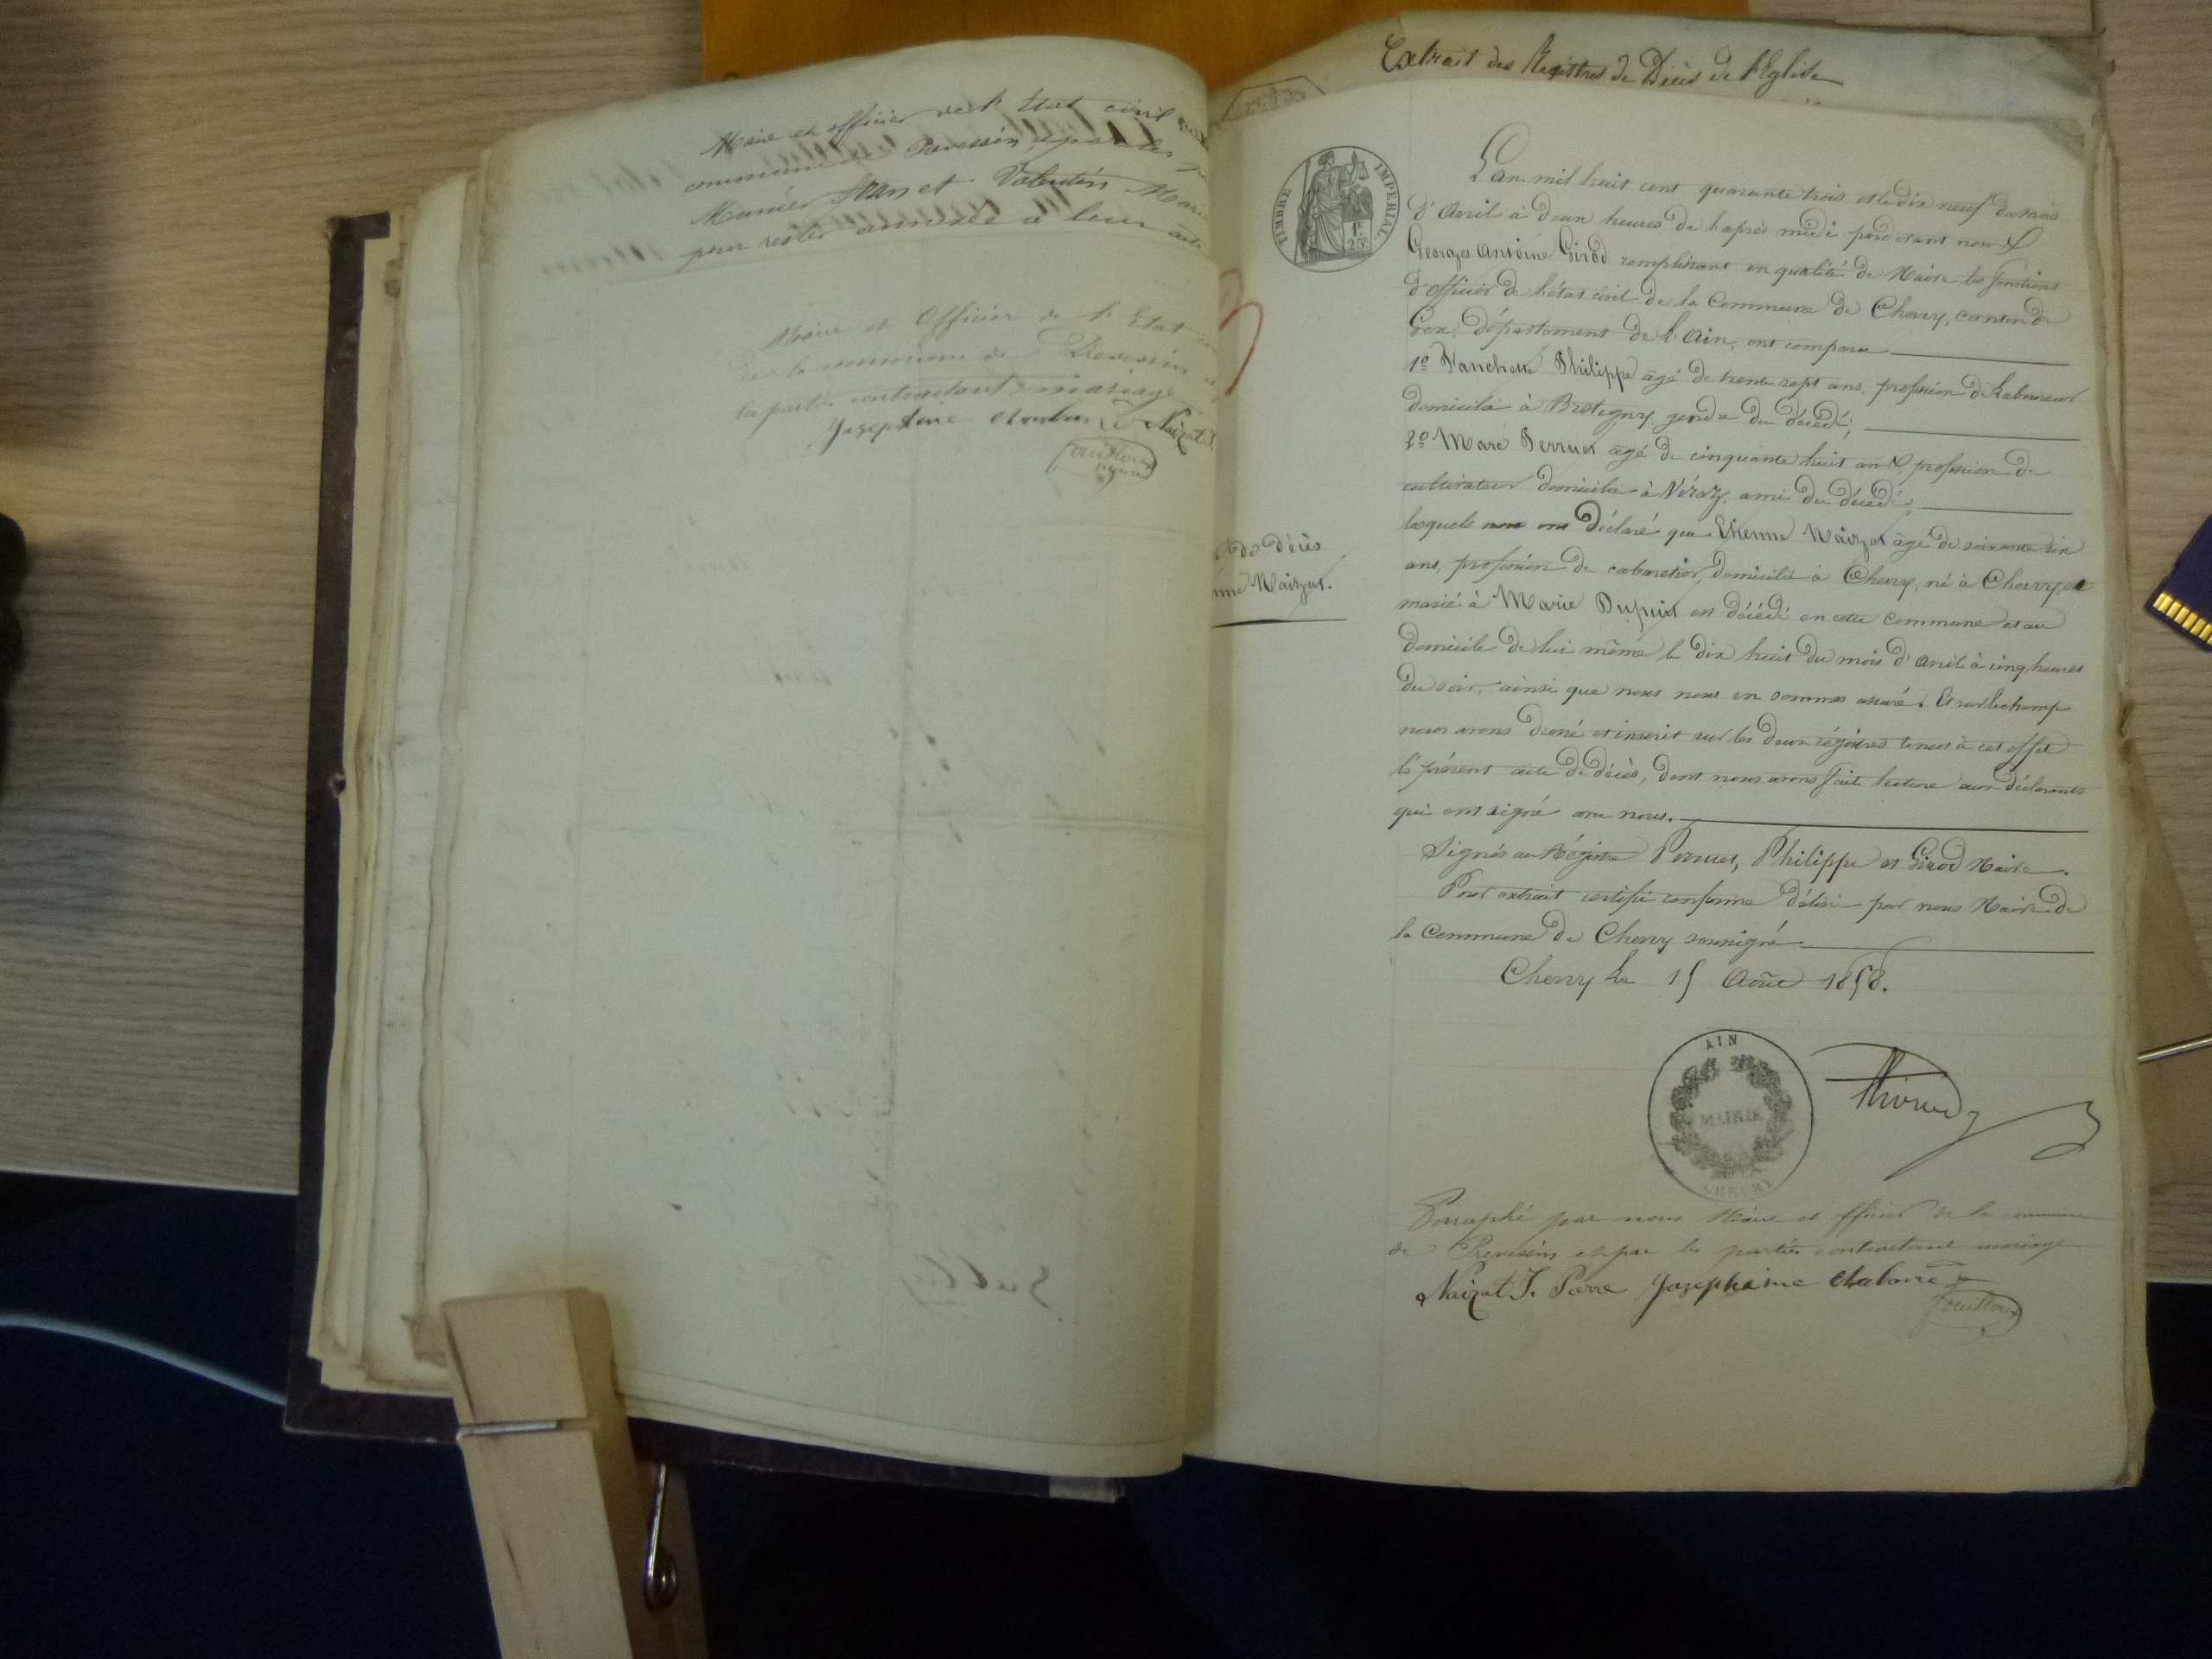 Maire et officier de l'Etat civil
commune Prevessin, par les
Munier Jean et Valentin Marie
pour rester annexée à leur acte
Maire et Officier de l'Etat
de la commune de Prevessin
les parties contractant mariage
Josephine Naizat
Extrait des Registres de Décès de l'Eglise
TIMBRE IMPERIAL
1F
25c
L'an mil huit cent quarante trois et le dix neuf du mois
d'Avril à deux heures de l'après midi pardevant nous
Georges Antoine Girod remplissant en qualité de Maire les fonctions
d'officier de l'état civil de la Commune de Chevry, canton de
Gex, département de l'Ain, ont comparu
1o Philippe âgé de trente sept ans, profession de Laboureur
domicilié à Bretigny gendre du décédé,
2o Marc Perruet âgé de cinquante huit ans, profession de
cultivateur domicilié à Véraz, ami du décédé,
lesquels nous ont déclaré que Etienne Naizat âgé de soixante six
ans, profession de cabaretier, domicilié à Chevry, né à Chevry, et
marié à Marie Dupuis est décédé en cette Commune et au
domicile de lui même le dix huit du mois d'avril à cinq heures
du soir, ainsi que nous nous en sommes assuré. Et sur le champ
nous avons dressé et inscrit sur les deux régistres tenus à cet effet
le présent acte de décès, dont nous avons fait lecture aux déclarants
qui ont signé avec nous.
Acte de décès
nne Naizat.
Signés au Régistre Perruet, Philippe et Girod Maire.
Pour extrait certifié conforme délivré par nous Maire de
la Commune de Chevry sousigné
Chevry Le 15 Août 1858.
AIN
MAIRIE
CHEVRY
Parraphé par nous Maire et officier de la commune
de Prevessin et par les parties contractant mariage
Naizat J. Pierre Josephine